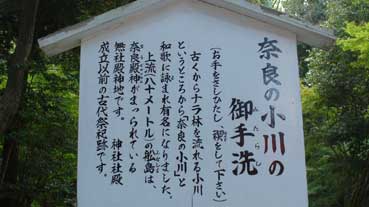 奈良の小川の
御手洗
みたらし
(お手をさしひたし「禊」をして下さい)
古くからナラ林を流れる小川
というところから「奈良の小川」と
和歌に詠まれ有名になりました。
上流(八十メートル)の舩島は、
奈良殿神がまつられている
無社殿神地です。神社社殿
成立以前の古代祭祀跡です。